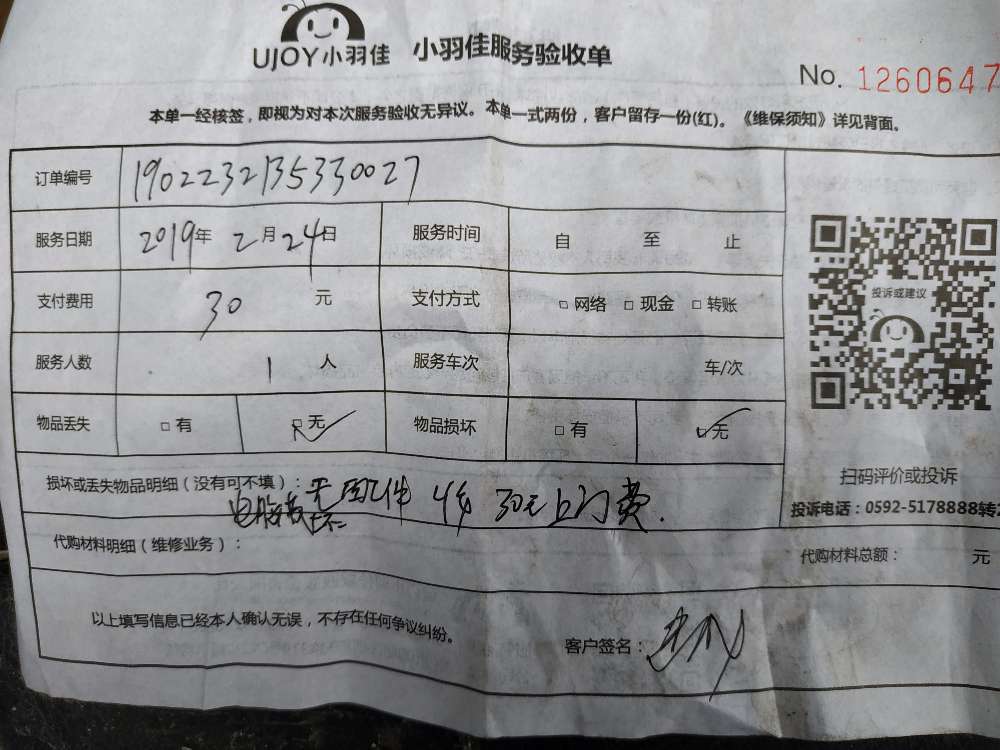 UJOY小羽佳 小羽佳服务验收单
No. 1260647
本单一经核签，即视为对本次服务验收无异议。本单一式两份，客户留存一份(红)。《维保须知》详见背面。
订单编号 1902232135330027
服务日期 2019年 2月 24日 服务时间 自 至 止
支付费用 30 元 支付方式 □ 网络 □ 现金 □ 转账
服务人数 1 人 服务车次 车/次
物品丢失 □ 有 □ 无 物品损坏 □ 有 □ 无
投诉或建议
扫码评价或投诉
投诉电话：0592-5178888转2
损坏或丢失物品明细（没有可不填）：
电脑板坏 无配件 收 30元上门费.
代购材料明细（维修业务）： 代购材料总额： 元
以上填写信息已经本人确认无误，不存在任何争议纠纷。 客户签名：